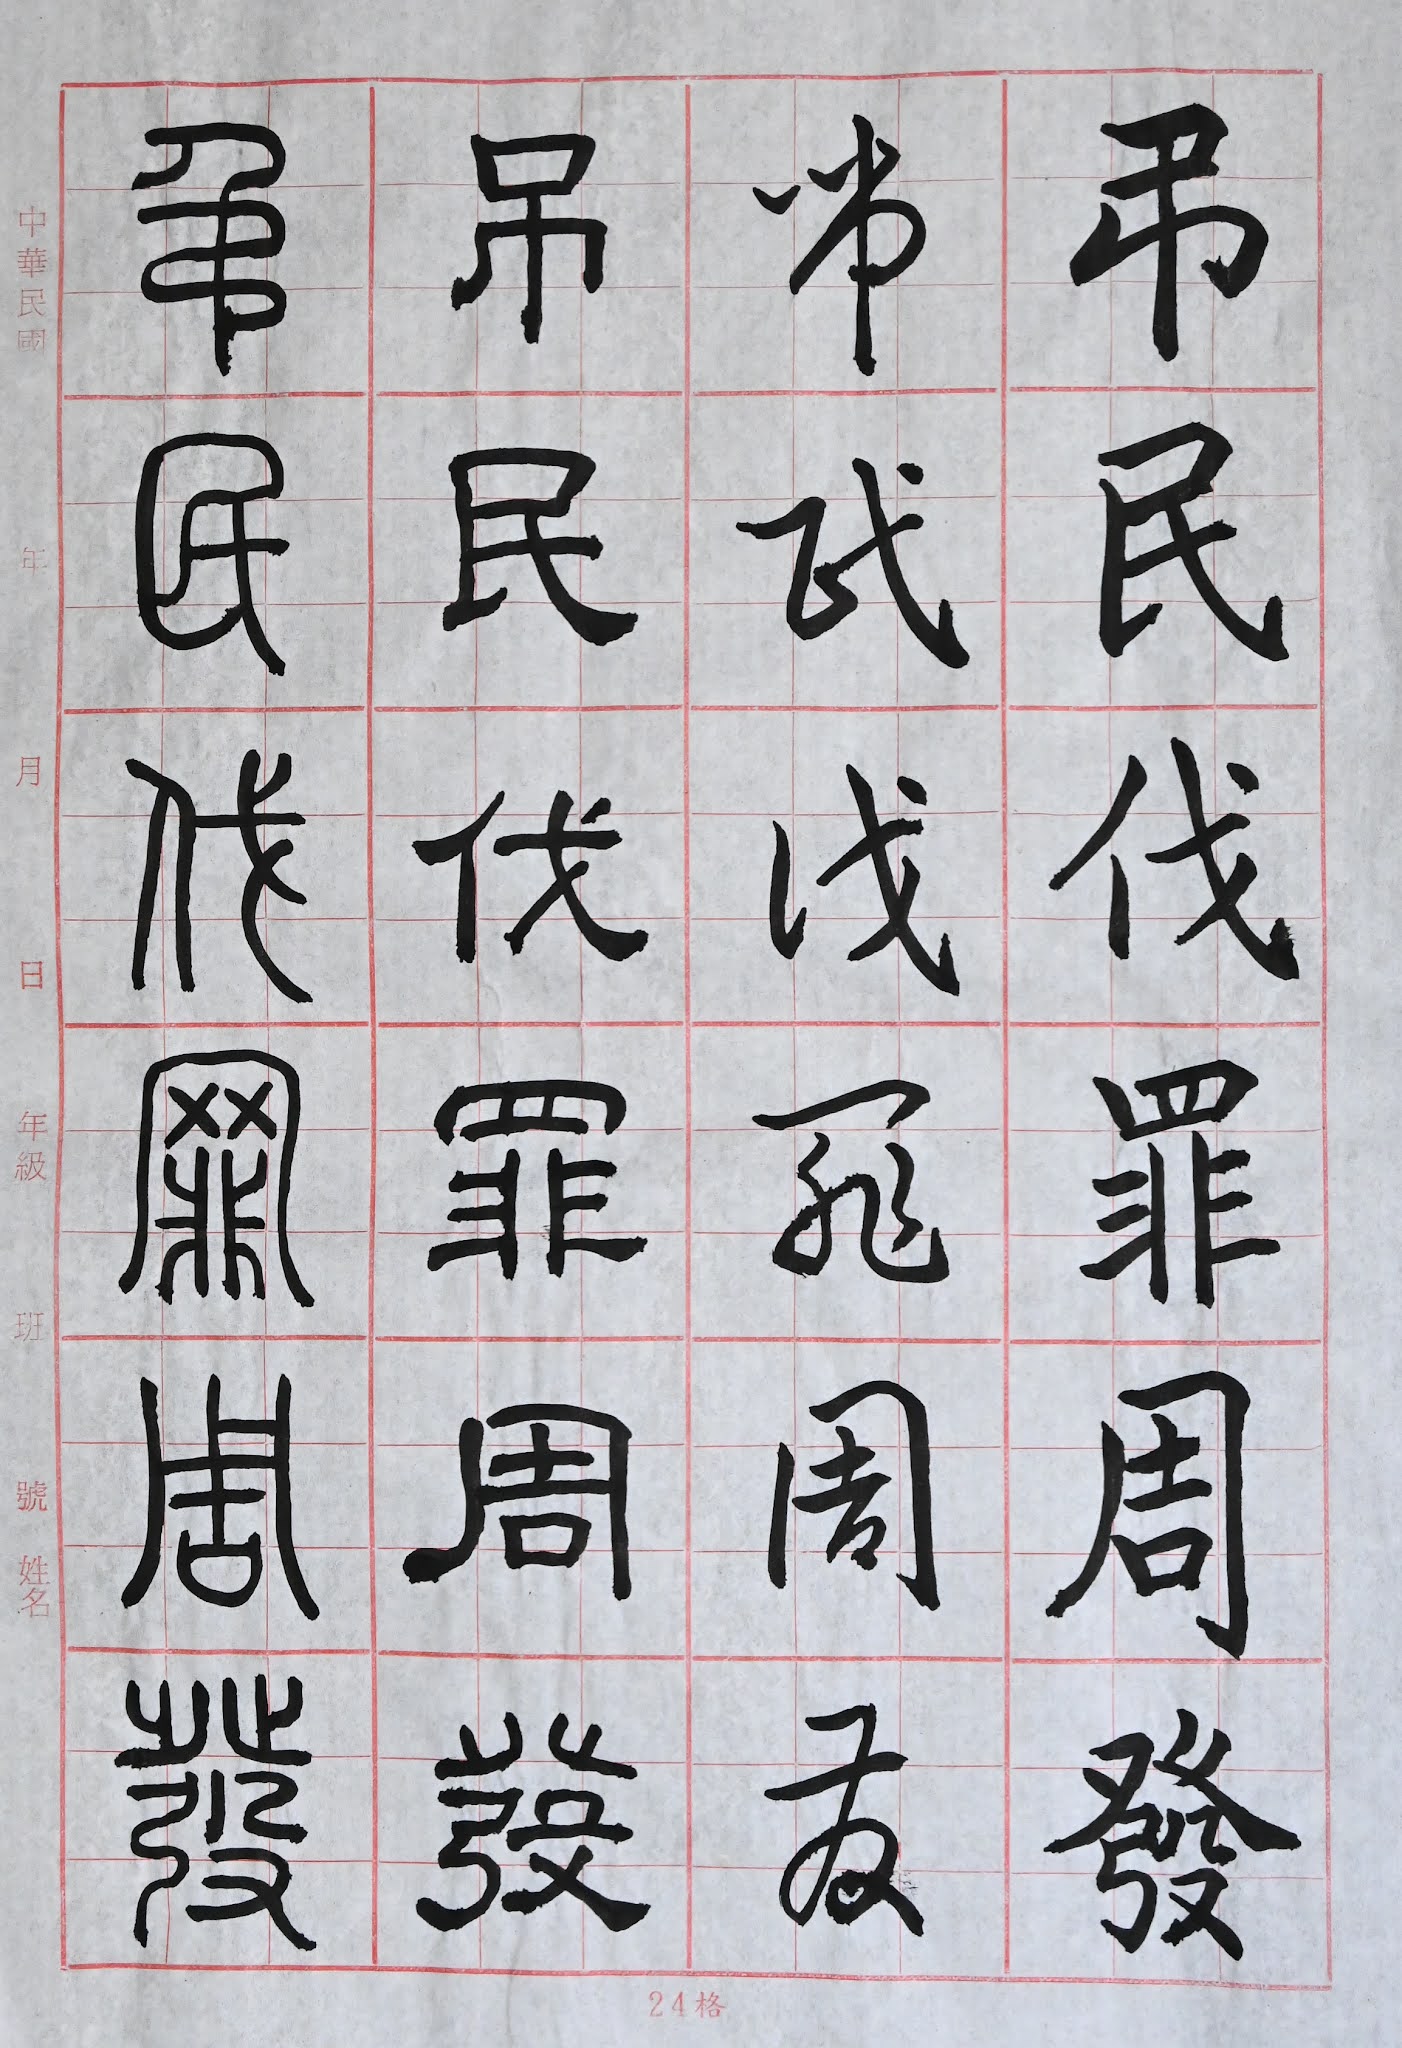 弔民伐罪周發
吊民伐罪周發
吊民伐罪周發
弔民伐罪周發
中華民國 年 月 日 年級 班 號 姓名
24格